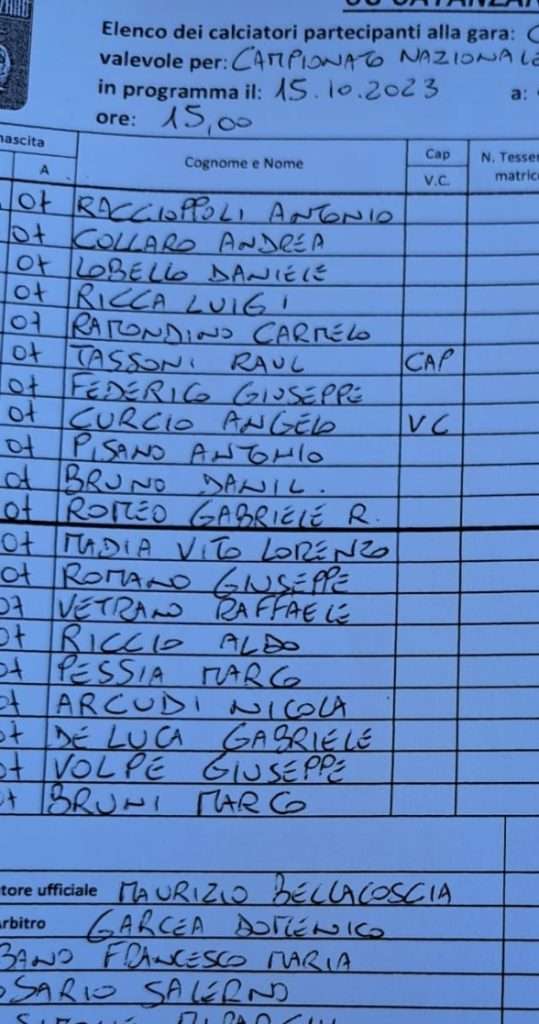 Elenco dei calciatori partecipanti alla gara:
valevole per: CAMPIONATO NAZIONALE
in programma il: 15.10.2023 a:
ore: 15,00
nascita
A Cognome e Nome Cap V.C. N. Tesser matric
07 RACCIOPPOLI ANTONIO
07 COLLARO ANDREA
07 LOBELLO DANIELE
07 RICCA LUIGI
07 RAMONDINO CARMELO
07 TASSONI RAUL CAP
07 FEDERICO GIUSEPPE
07 CURCIO ANGELO VC
07 PISANO ANTONIO
07 BRUNO DANIL.
07 ROMEO GABRIELE R.
07 MADIA VITO LORENZO
07 ROMANO GIUSEPPE
07 VETRANO RAFFAELE
07 RICCIO ALDO
07 PESSIA MARCO
07 ARCUDI NICOLA
07 DE LUCA GABRIELE
07 VOLPE GIUSEPPE
07 BRUNI MARCO
tore ufficiale MAURIZIO BELLACOSCIA
rbitro GARCEA DOMENICO
BANO FRANCESCO MARIA
OSARIO SALERNO